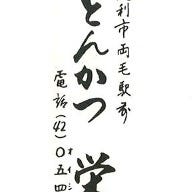 利市両毛駅前
とんかつ 栄
電話(42)〇五四
オイシ